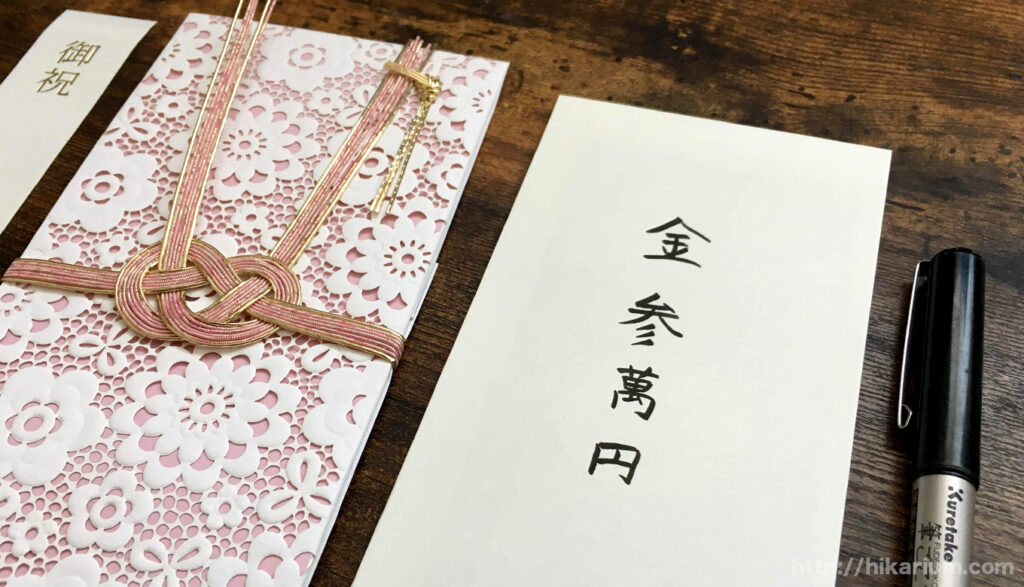 御祝
金参萬円
Kuretake
筆ご
http://hikarium.com